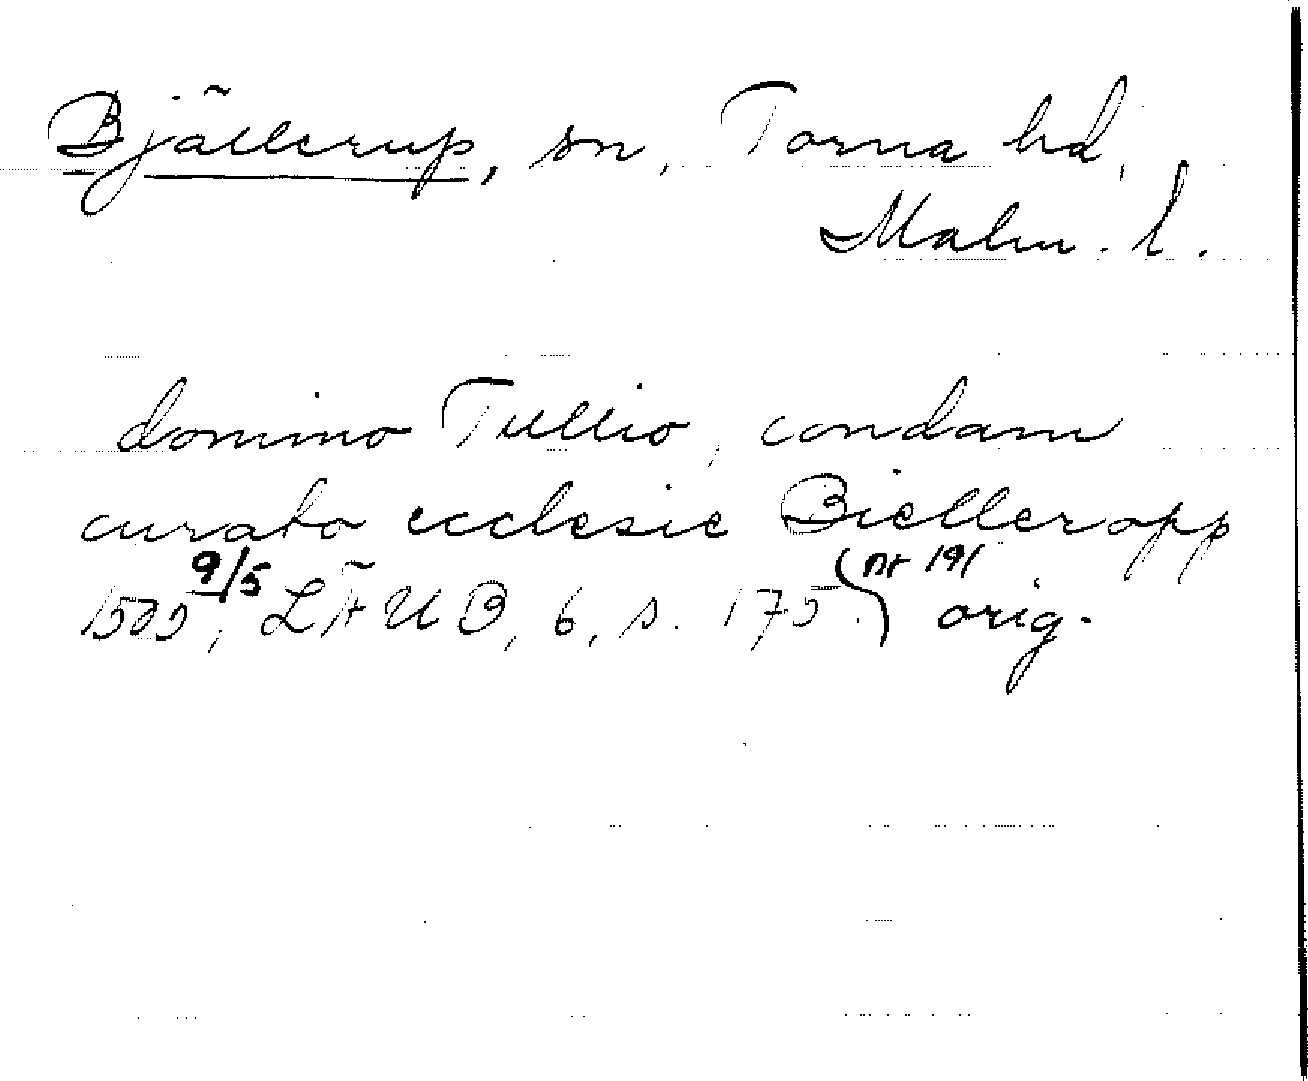 Bjällerup, sn, Torna hd,
Malm. l.
domino Tullio, condam
curato ecclesie Bielleropp
1505 9/5, LÄUB, 6, s. 175. nr 191 orig.